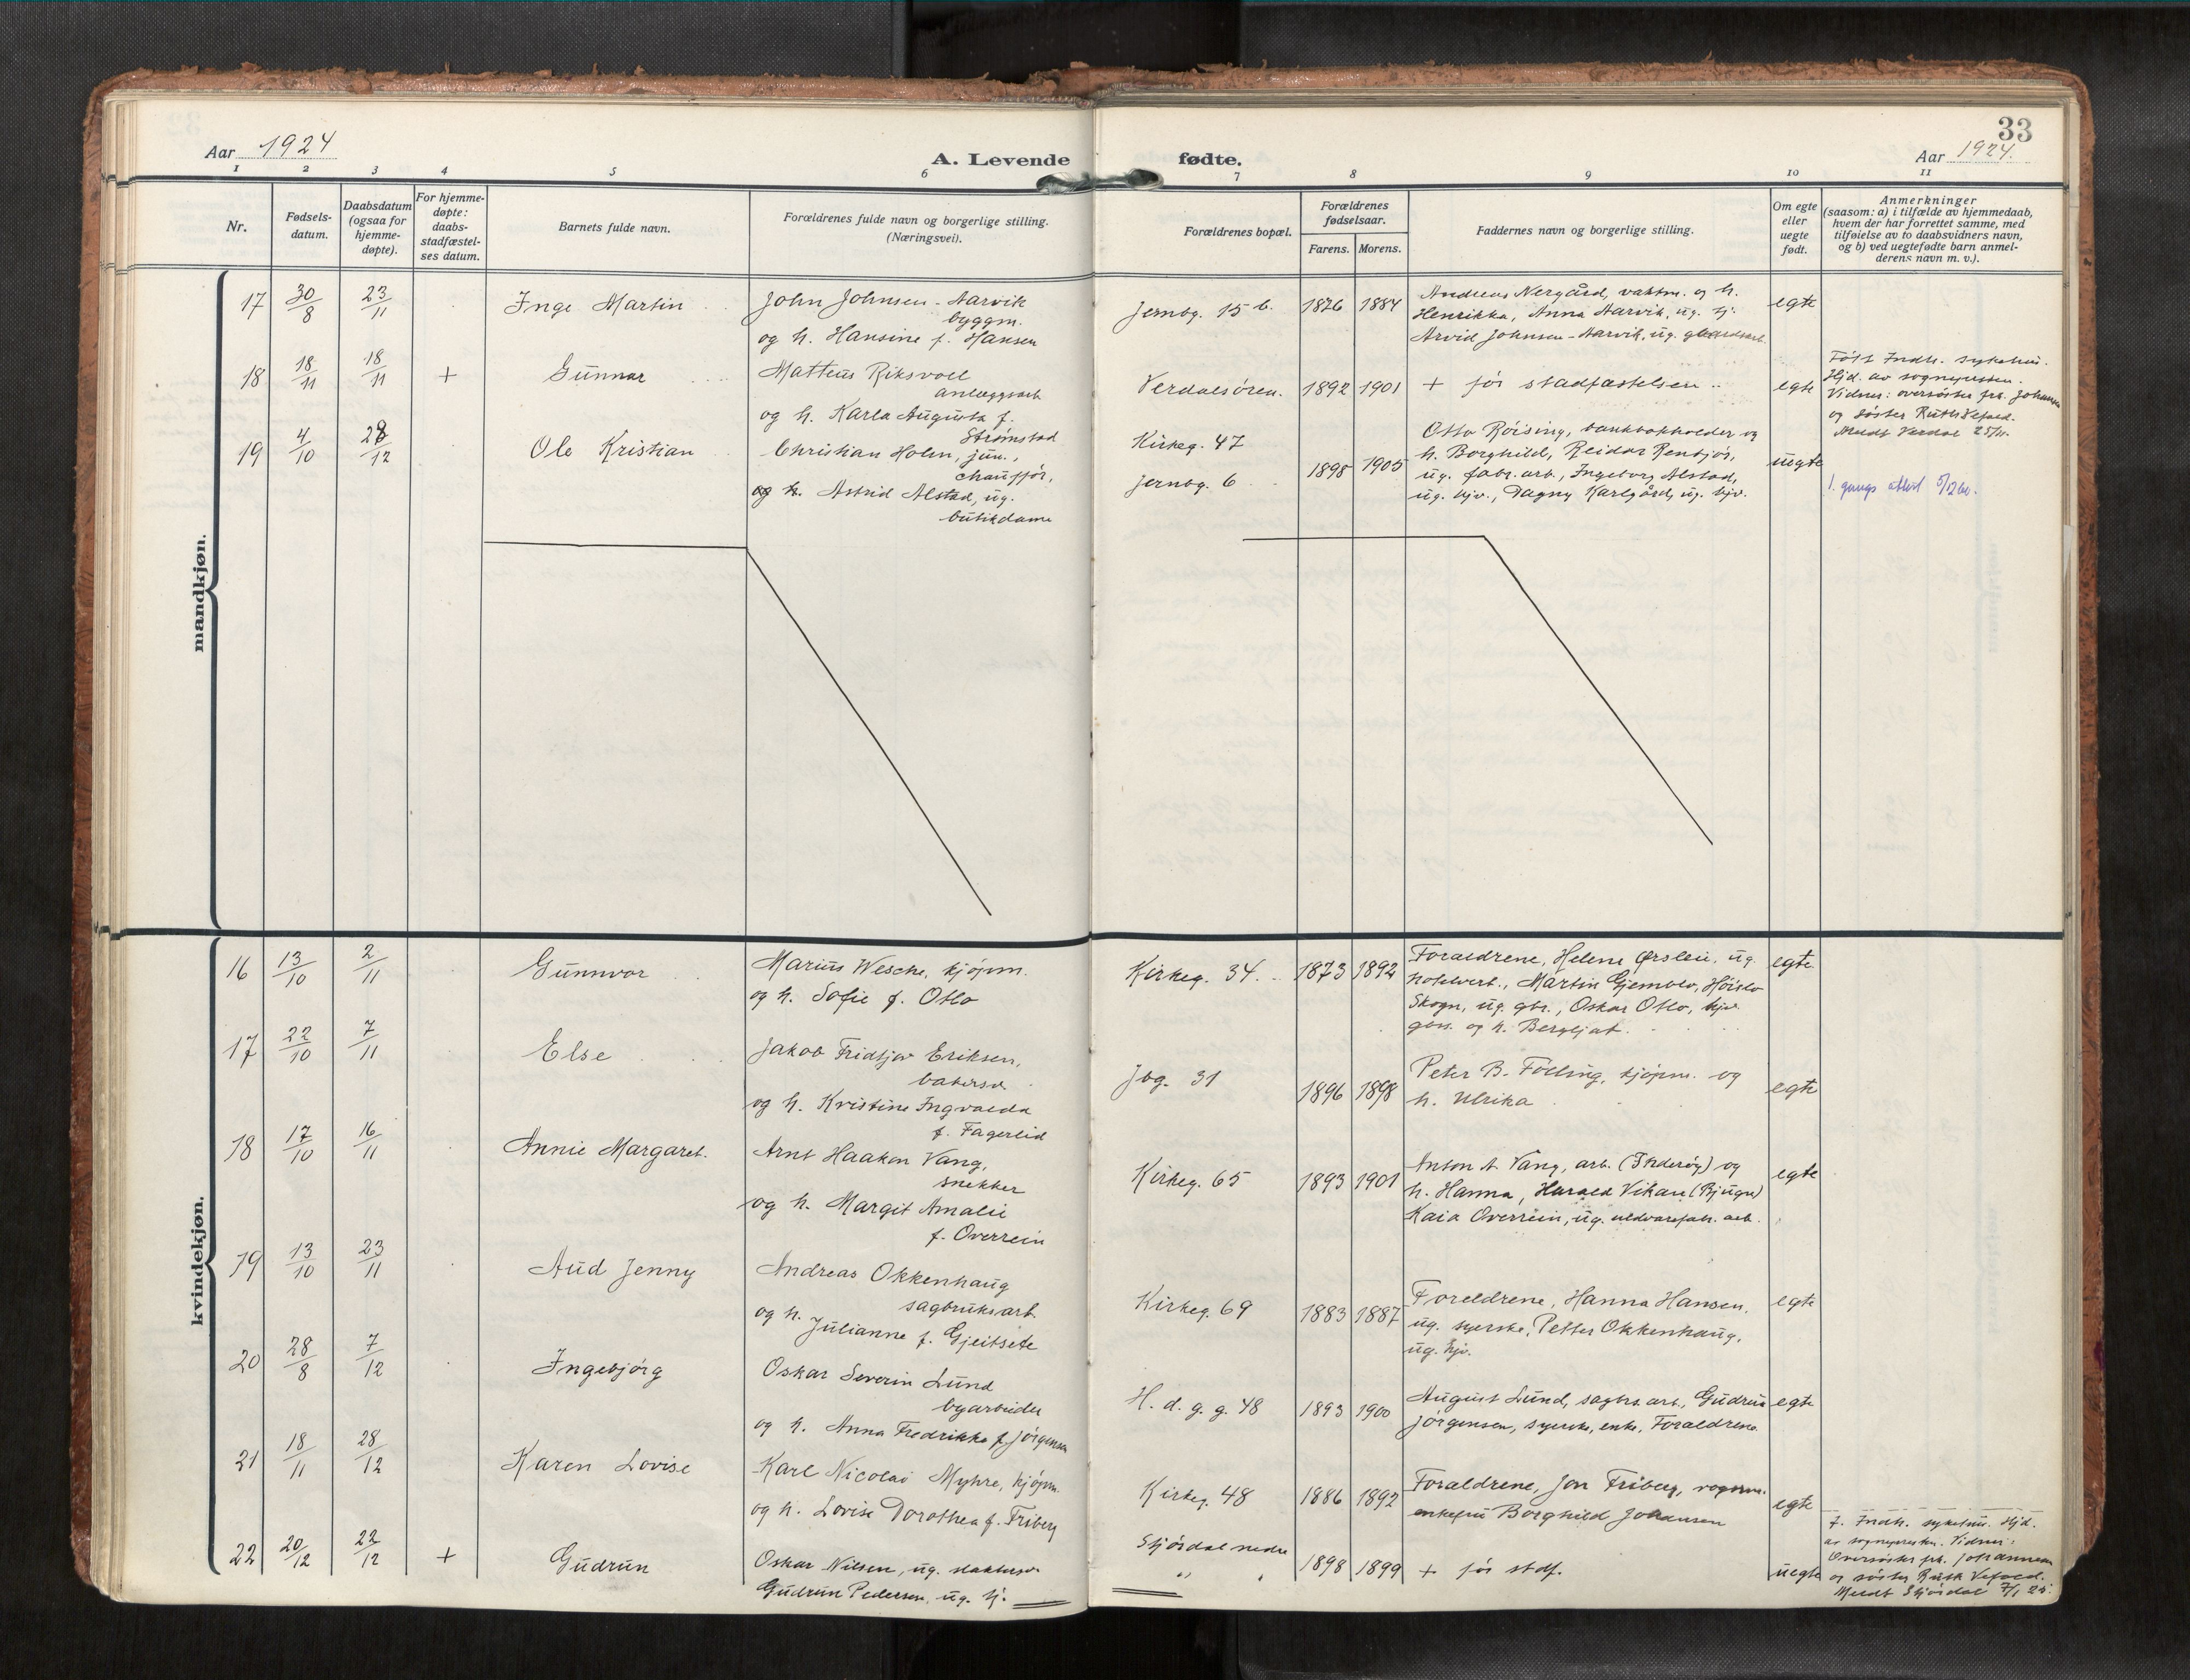 33
Aar 1924
A. Levende fødte.
Aar 1924.
1 2 3 4 5 6 7 8 9 10 11
Nr.
Fødsels-
datum.
Daabsdatum
(ogsaa for
hjemme-
døpte).
For hjemme-
døpte:
daabs-
stadfæstel-
ses datum.
Barnets fulde navn.
Forældrenes fulde navn og borgerlige stilling.
(Næringsvei).
Forældrenes bopæl.
Forældrenes
fødselsaar.
Farens. Morens.
Faddernes navn og borgerlige stilling.
Om egte
eller
uegte
født.
Anmerkninger
(saasom: a) i tilfælde av hjemmedaab,
hvem der har forrettet samme, med
tilføielse av to daabsvidners navn,
og b) ved uegtefødte barn anmel-
derens navn m. v.).
mandkjøn.
17 30/8 23/11 Inge Martin
John Johnsen-Aarvik
byggm.
og h. Hansine f. Hansen
Jernbg. 15 b. 1876 1884
Andreas Nergård, vaktm. og h.
Henrikka, Anna Aarvik, ug. hj.
Arvid Johnsen-Aarvik, ug.
egte
18 18/11 18/11 + Gunnar
Matteus Riksvoll
anlæggsarb
og h. Karla Augusta f.
Strømstad
Verdalsøren. 1892 1901 + før stadfæstelsen egte
Født Indh. sykehus.
Hjd. av sognepresten.
Vidner: oversøster frk. Johansen
og søster Ruth
Meldt Verdal 25/11.
19 4/10 28/12 Ole Kristian
Christian Holm, jun.,
chauffør,
og h. Astrid Alstad, ug.
butikdame
Kirkeg. 47
Jernbg. 6 1898 1905
Otto Røising, bankbokholder og
h. Borghild, Reidar Renbjør,
ug. fabr. arb., Ingeborg Alstad,
ug. hjv., Dagny Karlgård, ug. hjv.
uegte
1. gangs attest 5/12 60.
kvindekjøn.
16 13/10 2/11 Gunnvor
Marius Wesche, kjøpm.
og h. Sofie f. Otlo
Kirkeg. 34. 1873 1892
Forældrene, Helene Ørsleie, ug.
hotelvert., Martin Gjemble, Høislo
Skogn, ug. gbr., Oskar Otlo,
gbr. og h. Bergljot.
egte
17 22/10 7/11 Else
Jakob Fridtjov Eriksen,
bakersv.
og h. Kristine Ingvalda
f. Fagerlid
Jbg. 31 1896 1898
Peter B. Følling, kjøpm. og
h. Ulrika
egte
18 17/10 16/11 Annie Margaret.
Arnt Haakon Vang,
snekker
og h. Margit Amalie
f. Overrein
Kirkeg. 65 1893 1901
Anton A. Vang, arb. (Inderøy) og
h. Hanna, Harald Vikan (Bjugn)
Kaia Overrein, ug. uldvarefabr. arb.
egte
19 13/10 23/11 Aud Jenny
Andreas Okkenhaug
sagbruksarb.
og h. Julianne f. Gjeitsete
Kirkeg. 69 1883 1887
Foreldrene, Hanna Hansen.
ug. syerske, Petter Okkenhaug,
ug. hjv.
egte
20 28/8 7/12 Ingebjørg
Oskar Severin Lund
byarbeider
og h. Anna Fredrikke f. Jørgensen
H. d. g. g. 48 1893 1900
August Lund, sagbrs. arb., Gudrun
Jørgensen, syerske, enke, Foraldrene
egte
21 18/11 28/12 Karen Lovise
Karl Nicolai Myhre, kjøpm.
og h. Lovise Dorothea f. Friberg
Kirkeg. 48 1886 1892
Foraldrene, Jon Friberg, vognm.
enkefru Borghild Johansen
egte
22 20/12 22/12 + Gudrun
Oskar Nilsen, ug. slaktersv.
Gudrun Pedersen, ug. hj.
Stjørdal nedre
" " 1898 1899 + før stdf. uegte
F. Indh. sykehus. Hjd.
av sognepresten. Vidner:
Oversøster frk. Johannesen
og søster Ruth
Meldt Stjørdal 7/1 25.